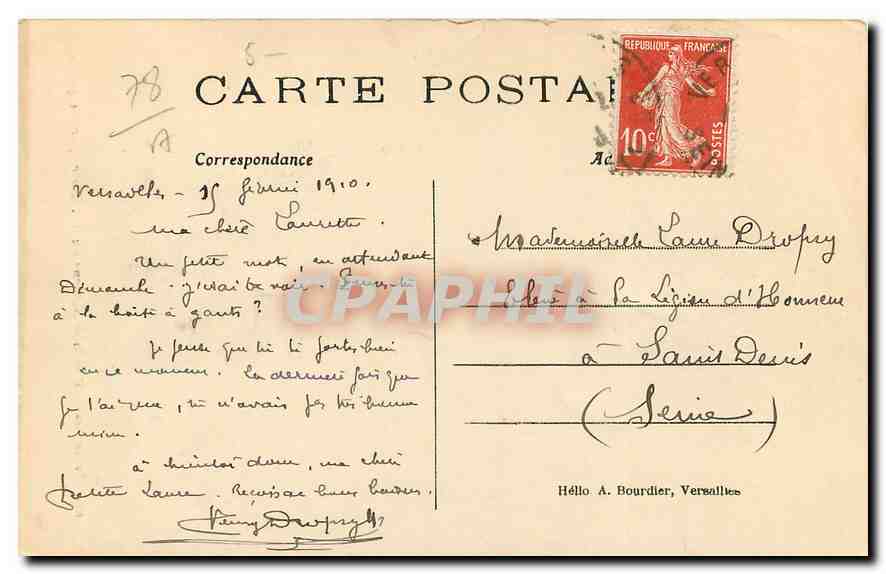 5-
78
A
CARTE POSTA
RÉPUBLIQUE FRANÇAISE
10c
POSTES
Correspondance
Versailles - 15 février 1910.
ma chère Laurette.
Un petit mot, en attendant
Dimanche. j'irai te voir. Penses-tu
à la boîte à gants ?
Je pense que tu te portes bien
en ce moment. La dernière fois que
je t'ai vue, tu n'avais pas très bonne
mine.
à bientôt donc, ma chère
petite Laure. Reçois de bons baisers.
Henry Dropsy
Mademoiselle Laure Dropsy
Elève à la Légion d'Honneur
à Saint Denis
(Seine)
Hélio A. Bourdier, Versailles
CPAPHIL